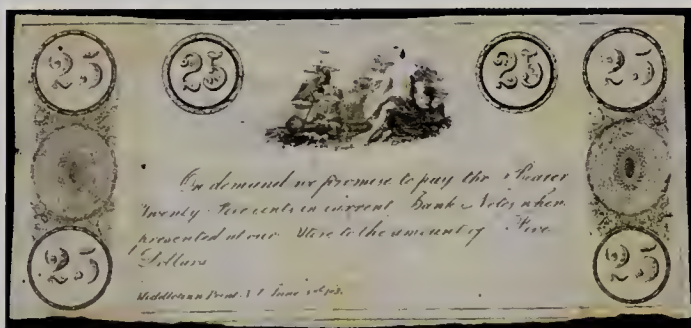 25 25 25 25
On demand we promise to pay the Bearer
Twenty Five cents in current Bank Notes when
presented at our Store to the amount of Five
Dollars
25 25
Middletown Point